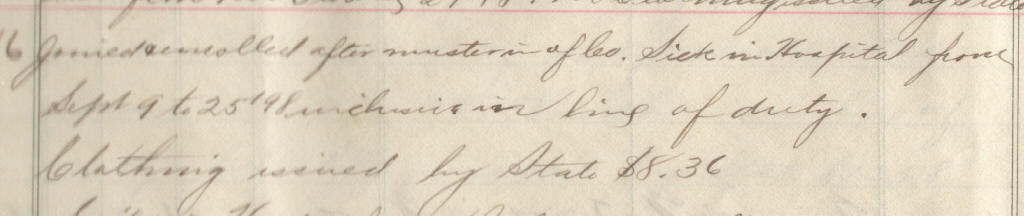 by State
6 Joined & enrolled after muster in of Co. Sick in Hospital from
Sept 9 to 25 '98 inclusive in line of duty.
Clothing issued by State $8.36